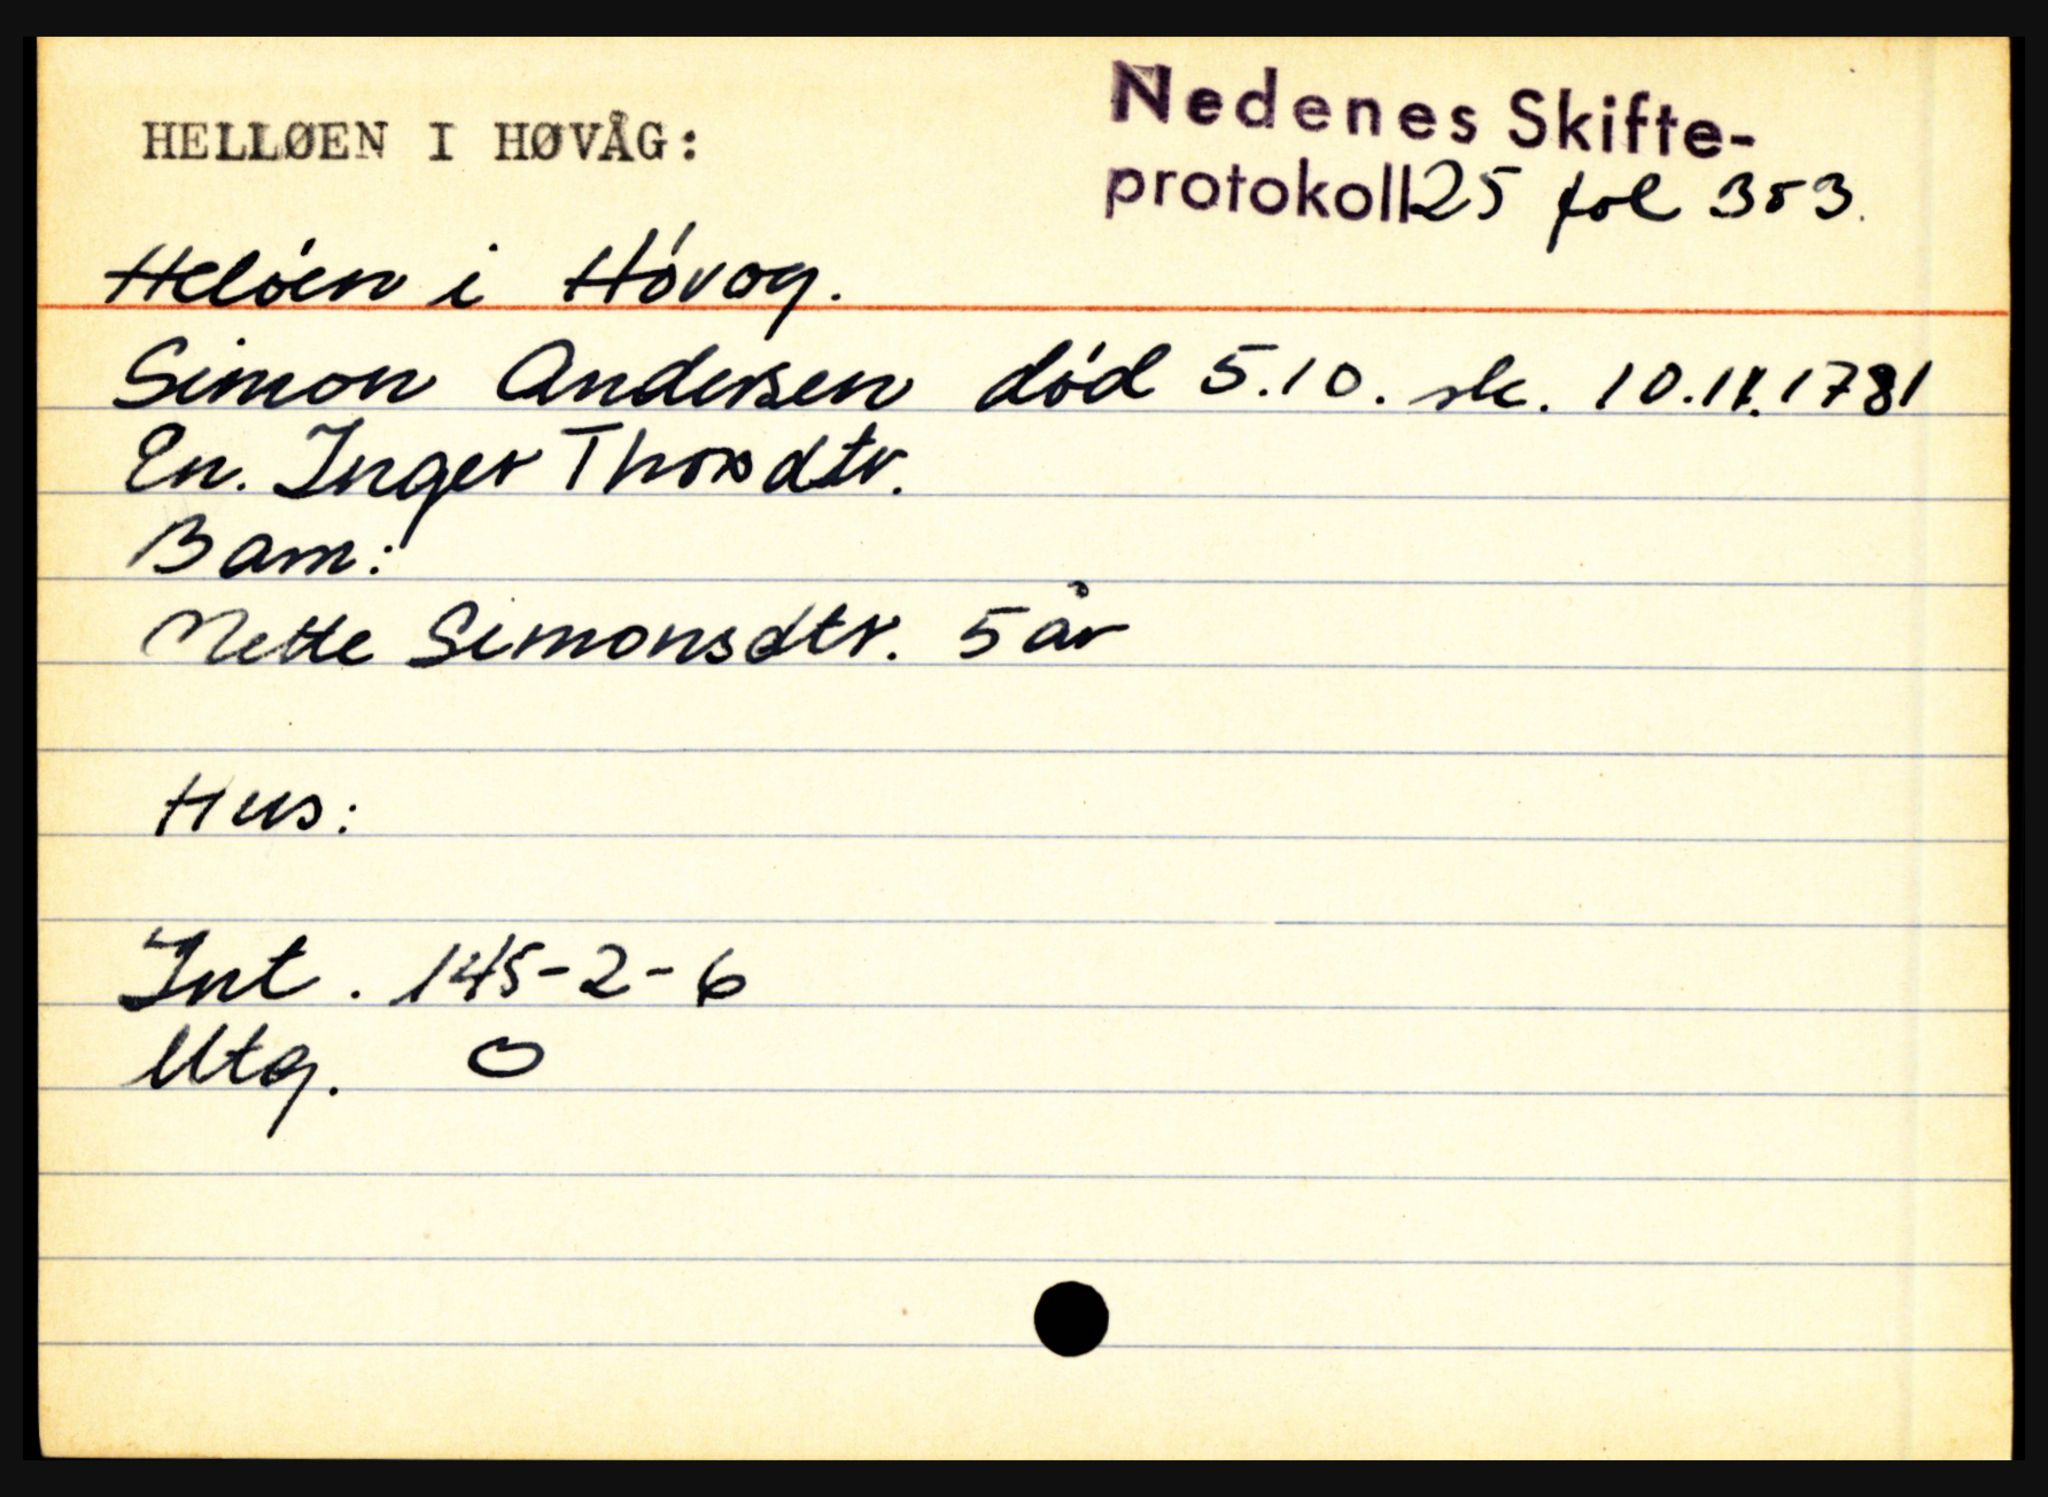 HELLØEN I HØVÅG:
Nedenes Skifte-
protokoll 25 fol 353.
Heløen i Høvag.
Simon Andersen død 5.10. sk. 10.11.1781
En. Inger Thorsdtr.
Barn:
Mette Simonsdtr. 5 år
Hus:
Int. 145-2-6
Utg. 0